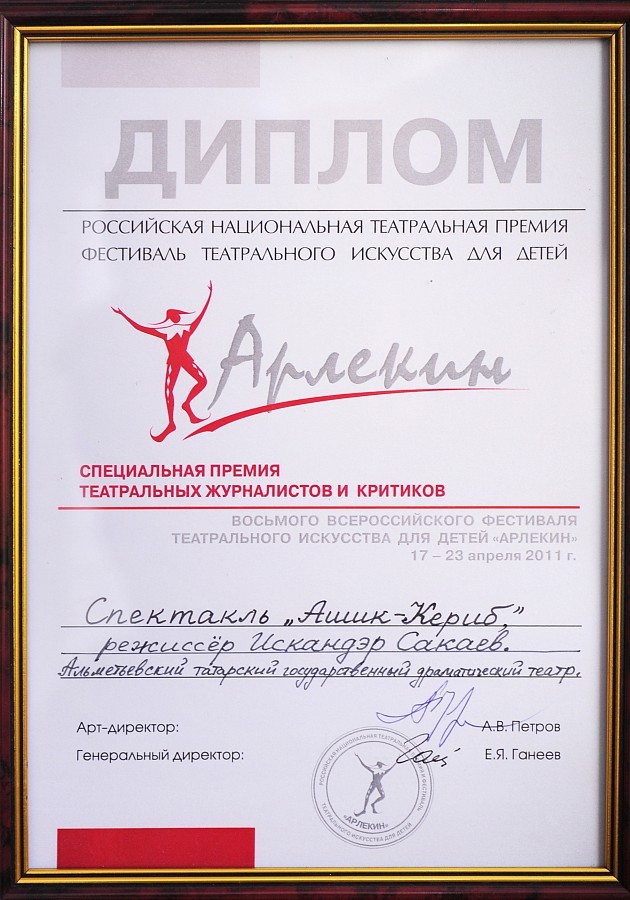 ДИПЛОМ
РОССИЙСКАЯ НАЦИОНАЛЬНАЯ ТЕАТРАЛЬНАЯ ПРЕМИЯ
ФЕСТИВАЛЬ ТЕАТРАЛЬНОГО ИСКУССТВА ДЛЯ ДЕТЕЙ
Арлекин
СПЕЦИАЛЬНАЯ ПРЕМИЯ
ТЕАТРАЛЬНЫХ ЖУРНАЛИСТОВ И КРИТИКОВ
ВОСЬМОГО ВСЕРОССИЙСКОГО ФЕСТИВАЛЯ
ТЕАТРАЛЬНОГО ИСКУССТВА ДЛЯ ДЕТЕЙ «АРЛЕКИН»
17 – 23 апреля 2011 г.
Спектакль „Ашик-Кериб,”
режиссёр Искандэр Сакаев.
Альметьевский татарский государственный драматический театр.
Арт-директор: А.В. Петров
Генеральный директор: Е.Я. Ганеев
РОССИЙСКАЯ НАЦИОНАЛЬНАЯ ТЕАТРАЛЬНАЯ ПРЕМИЯ И ФЕСТИВАЛЬ
ТЕАТРАЛЬНОГО ИСКУССТВА ДЛЯ ДЕТЕЙ
«АРЛЕКИН»